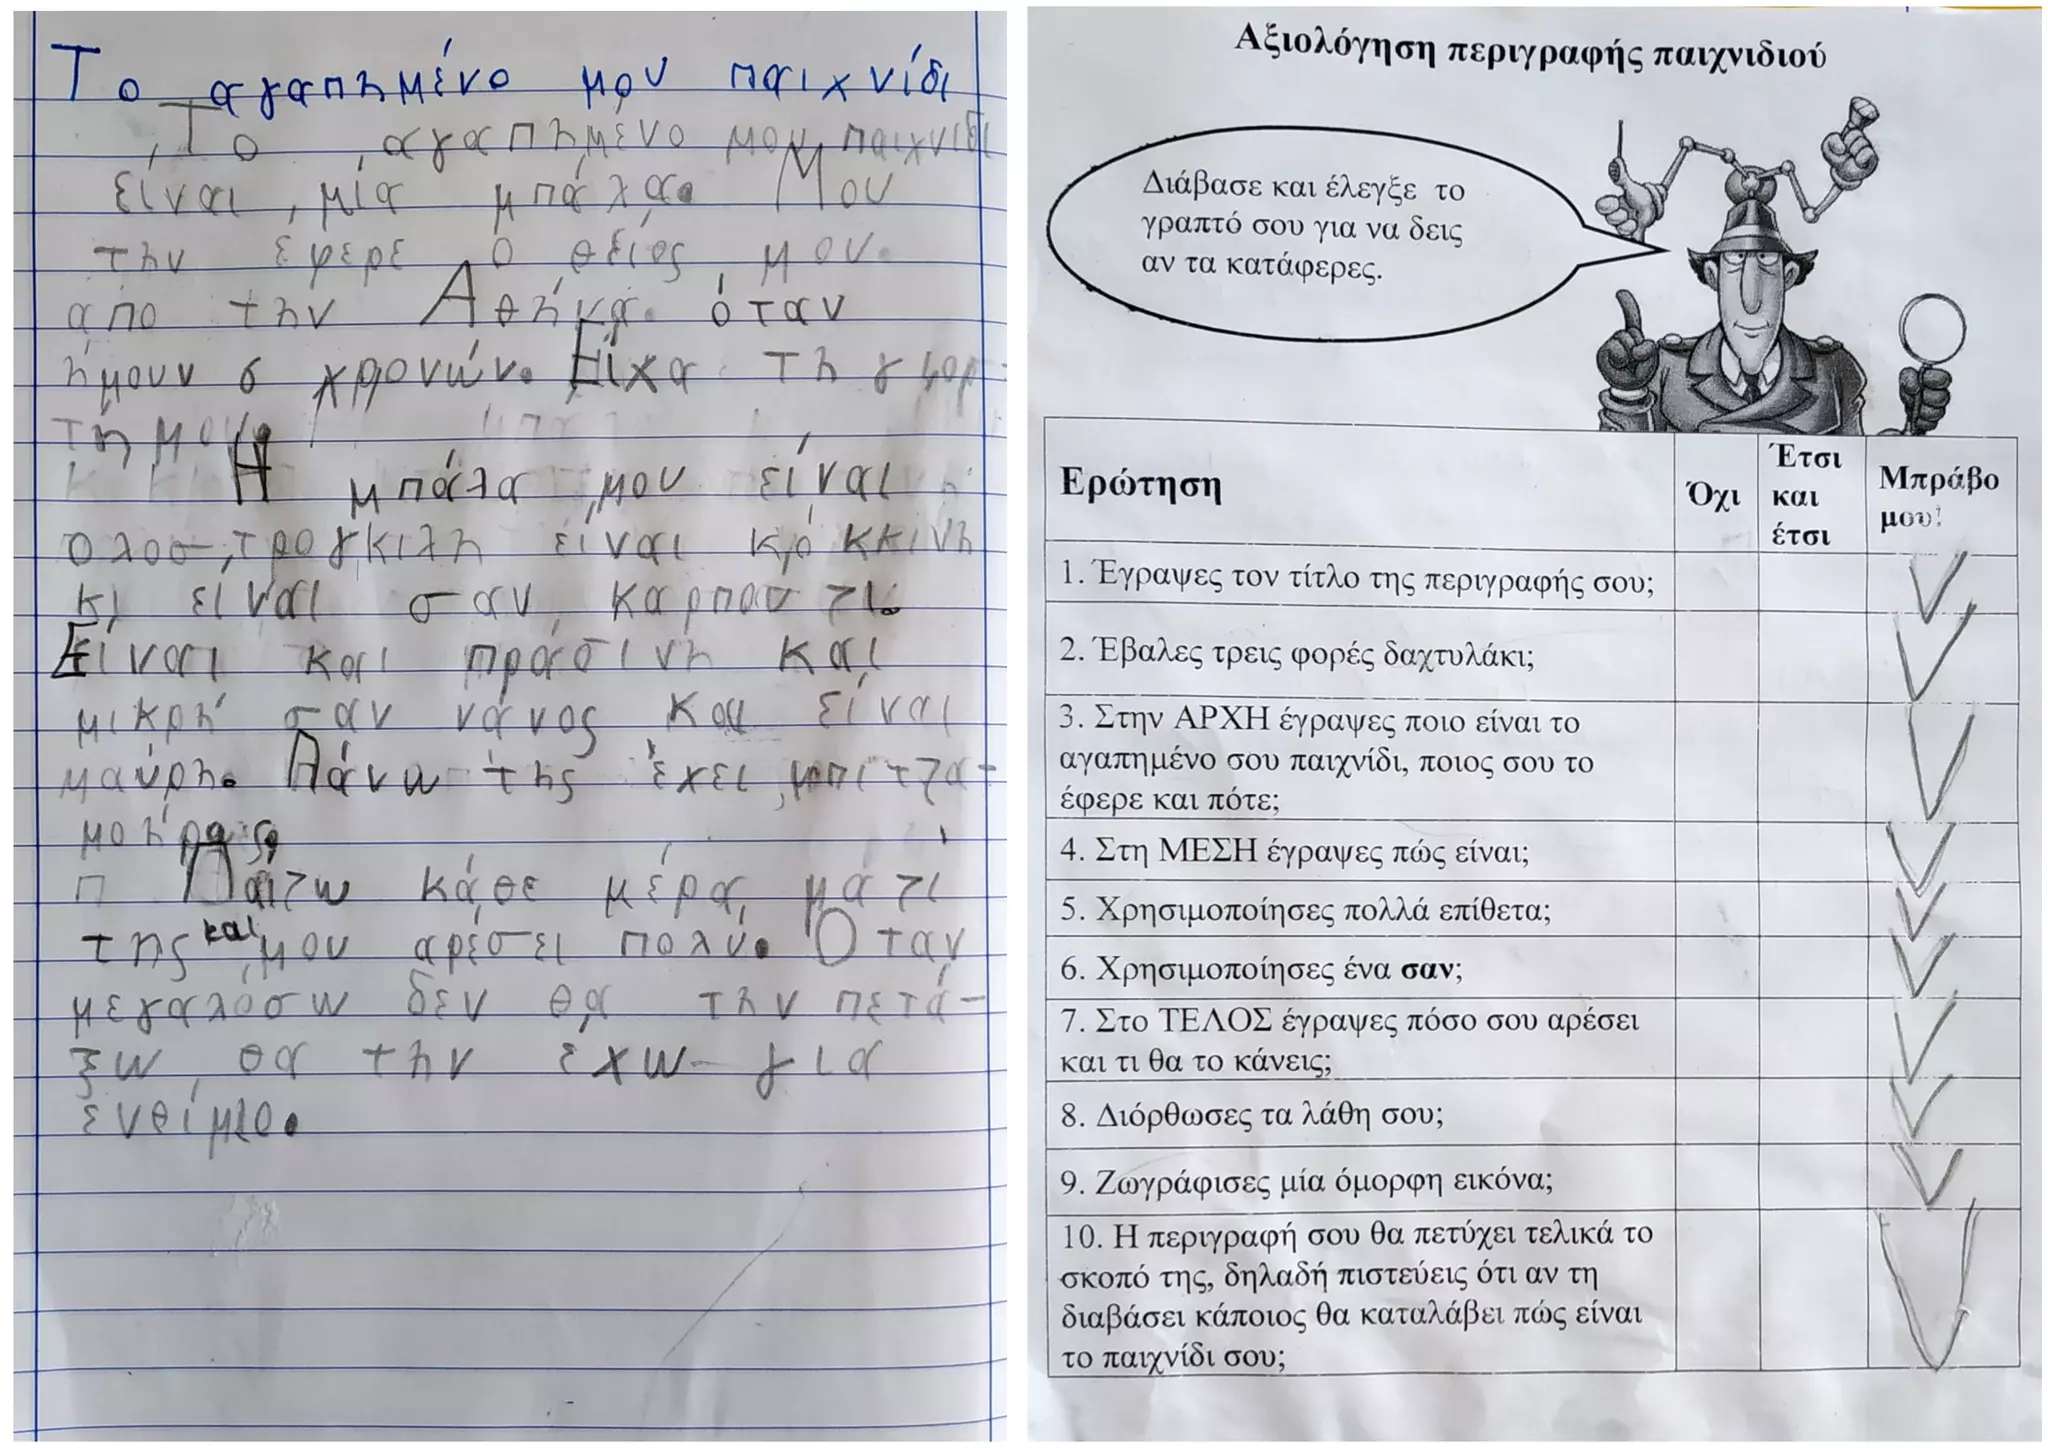 Το αγαπημένο μου παιχνίδι
Το αγαπημένο μου παιχνίδι
είναι μία μπάλα. Μου
την έφερε ο θείος μου
απο την Αθήνα όταν
ήμουν σ χρονών. Είχα τη γιορ-
τή μου
Η μπάλα μου είναι
ολοστρογκιλη είναι κόκκινη
κι είναι σαν καρπουζι.
Είναι και πράσινη και
μικρή σαν νάνος και είναι
μαύρη. Πάνω της έχει
Παίζω κάθε μέρα μαζί
της και μου αρέσει πολύ. Όταν
μεγαλόσω δεν θα την πετά-
ξω θα την εχω για
ενθίμιο.
Αξιολόγηση περιγραφής παιχνιδιού
Διάβασε και έλεγξε το
γραπτό σου για να δεις
αν τα κατάφερες.
Ερώτηση Όχι Έτσι και έτσι Μπράβο μου!
1. Έγραψες τον τίτλο της περιγραφής σου;
2. Έβαλες τρεις φορές δαχτυλάκι;
3. Στην ΑΡΧΗ έγραψες ποιο είναι το
αγαπημένο σου παιχνίδι, ποιος σου το
έφερε και πότε;
4. Στη ΜΕΣΗ έγραψες πώς είναι;
5. Χρησιμοποίησες πολλά επίθετα;
6. Χρησιμοποίησες ένα σαν;
7. Στο ΤΕΛΟΣ έγραψες πόσο σου αρέσει
και τι θα το κάνεις;
8. Διόρθωσες τα λάθη σου;
9. Ζωγράφισες μία όμορφη εικόνα;
10. Η περιγραφή σου θα πετύχει τελικά το
σκοπό της, δηλαδή πιστεύεις ότι αν τη
διαβάσει κάποιος θα καταλάβει πώς είναι
το παιχνίδι σου;